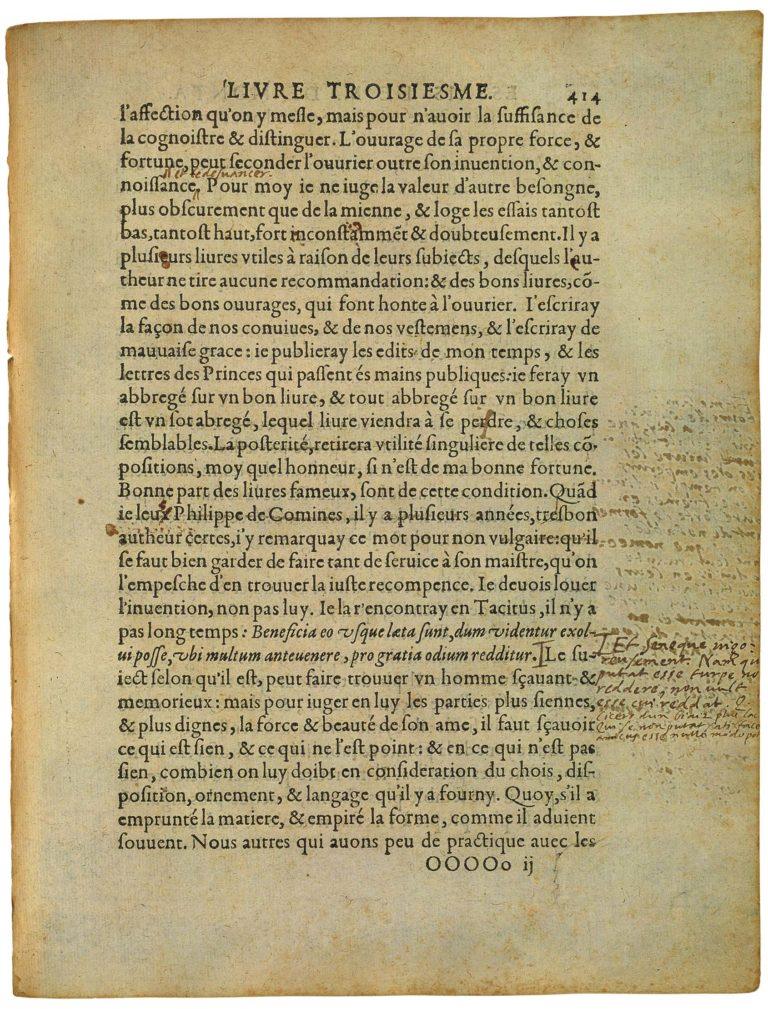 LIVRE TROISIESME. 414
l'affection qu'on y mesle, mais pour n'auoir la suffisance de
la cognoistre & distinguer. L'ouurage de sa propre force, &
fortune, peut seconder l'ouurier outre son inuention, & con-
& le deuancer.
noissance. Pour moy ie ne iuge la valeur d'autre besongne,
plus obscurement que de la mienne, & loge les essais tantost
bas, tantost haut, fort inconstammẽt & doubteusement. Il y a
plusieurs liures vtiles à raison de leurs subiects, desquels l'au-
theur ne tire aucune recommandation: & des bons liures, cõ-
me des bons ouurages, qui font honte à l'ouurier. I'escriray
la façon de nos conuiues, & de nos vestemens, & l'escriray de
mauuaise grace: ie publieray les edits de mon temps, & les
lettres des Princes qui passent és mains publiques: ie feray vn
abbregé sur vn bon liure, & tout abbregé sur vn bon liure
est vn sot abregé, lequel liure viendra à se perdre, & choses
semblables. La posterité, retirera vtilité singuliere de telles cõ-
positions, moy quel honneur, si n'est de ma bonne fortune.
Bonne part des liures fameux, sont de cette condition. Quãd
ie leux Philippe de Comines, il y a plusieurs années, tresbon
autheur certes, i'y remarquay ce mot pour non vulgaire: qu'il
se faut bien garder de faire tant de seruice à son maistre, qu'on
l'empesche d'en trouuer la iuste recompence. Ie deuois louer
l'inuention, non pas luy. Ie la r'encontray en Tacitus, il n'y a
pas long temps: Beneficia eo vsque læta sunt, dum videntur exol-
ui posse, vbi multum anteuenere, pro gratia odium redditur. Le su-
iect selon qu'il est, peut faire trouuer vn homme sçauant &
memorieux: mais pour iuger en luy les parties plus siennes,
& plus dignes, la force & beauté de son ame, il faut sçauoir
ce qui est sien, & ce qui ne l'est point: & en ce qui n'est pas
sien, combien on luy doibt en consideration du chois, dis-
position, ornement, & langage qu'il y a fourny. Quoy, s'il a
emprunté la matiere, & empiré la forme, comme il aduient
souuent. Nous autres qui auons peu de practique auec les
OOOOo ij
Et Seneque uigo
reusement. Nam qui
putat esse turpe no
reddere, non uult
esse cui reddat. Q.
Cicero d'un biais plus lac
Qui se non putat satisface
amicus esse nullo modo pot